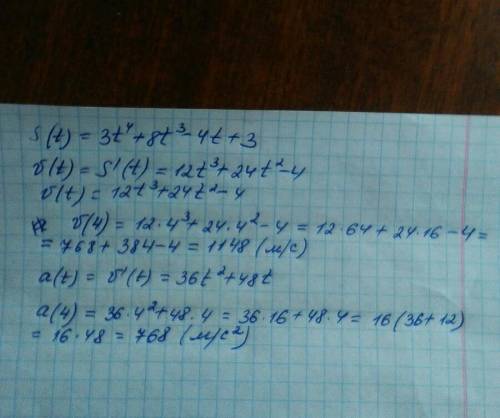 S(t) = 3t⁴+8t³-4t+3
v(t) = S'(t) = 12t³+24t²-4
v(t) = 12t³+24t²-4
v(4) = 12·4³+24·4²-4 = 12·64+24·16-4=
= 768+384-4 = 1148 (м/с)
a(t) = v'(t) = 36t²+48t
a(4) = 36·4²+48·4 = 36·16+48·4 = 16(36+12)
= 16·48 = 768 (м/с²)